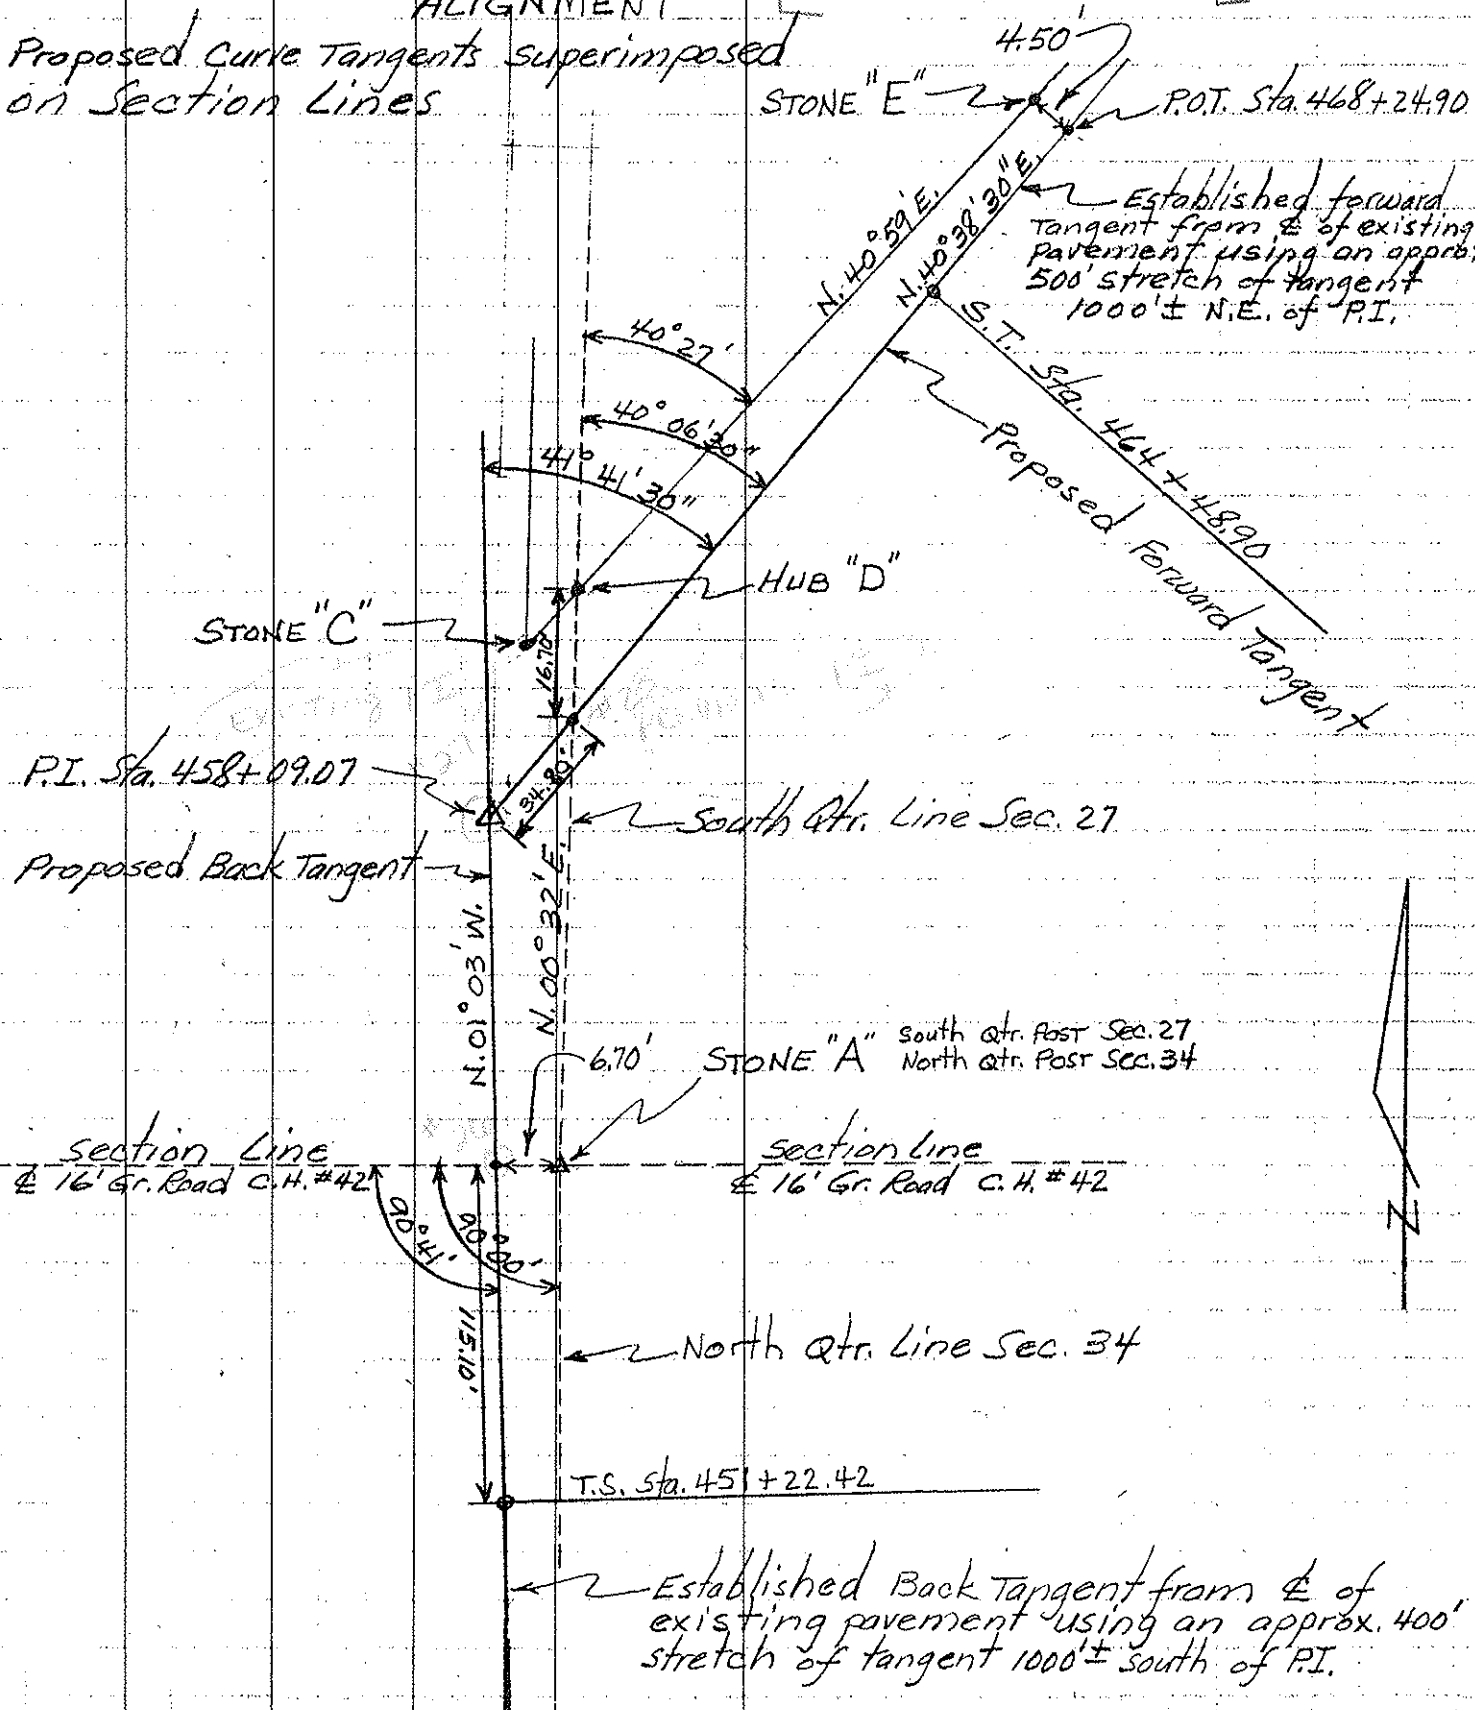 ALIGNMENT
Proposed Curve Tangents superimposed
on Section Lines
4.50'
STONE "E"
P.O.T. Sta. 468+24.90
Established forward
Tangent from ℄ of existing
pavement using an approx.
500' stretch of tangent
1000'± N.E. of P.I.
N. 40° 59' E.
N. 40° 38' 30" E.
S.T. Sta. 464+48.90
Proposed Forward Tangent
40° 27'
40° 06' 30"
41° 41' 30"
HUB "D"
STONE "C"
16.70'
P.I. Sta. 458+09.07
34.80'
South Qtr. Line Sec. 27
Proposed Back Tangent
N. 01° 03' W.
N. 00° 32' E.
6.70'
STONE "A"
South Qtr. Post Sec. 27
North Qtr. Post Sec. 34
Section Line
℄ 16' Gr. Road C.H. #42
section line
℄ 16' Gr. Road C.H. #42
90° 41'
90° 00'
115.10'
N
North Qtr. Line Sec. 34
T.S. Sta. 451+22.42
Established Back Tangent from ℄ of
existing pavement using an approx. 400'
stretch of tangent 1000'± south of P.I.